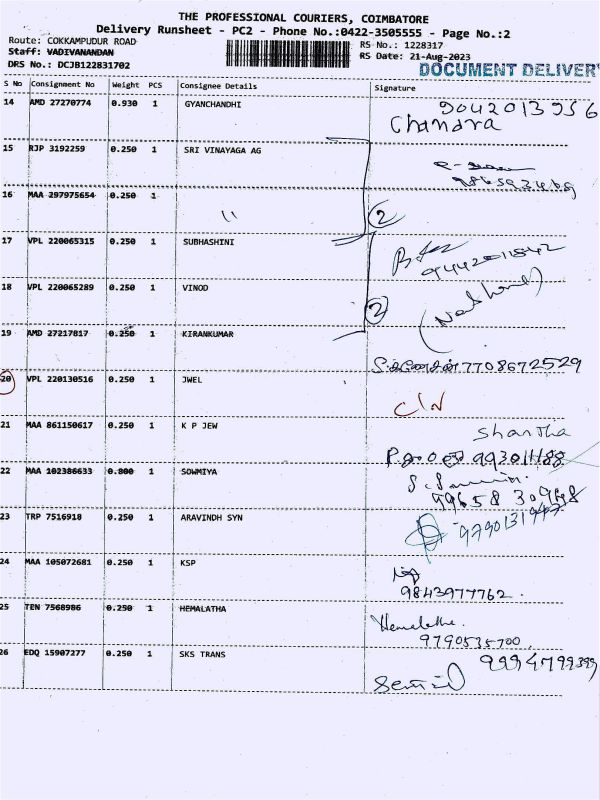 THE PROFESSIONAL COURIERS, COIMBATORE
Delivery Runsheet - PC2 - Phone No.:0422-3505555 - Page No.:2
Route: COKKAMPUDUR ROAD
RS No.: 1228317
Staff: VADIVANANDAN
RS Date: 21-Aug-2023
DRS No.: DCJB122831702
DOCUMENT DELIVERY
S No Consignment No Weight PCS Consignee Details Signature
14 AMD 27270774 0.930 1 GYANCHANDHI 9042013956
Chandra
15 RJP 3192259 0.250 1 SRI VINAYAGA AG
16 MAA 297975654 0.250 1 "
2
17 VPL 220065315 0.250 1 SUBHASHINI
9442011542
18 VPL 220065289 0.250 1 VINOD
2
19 AMD 27217817 0.250 1 KIRANKUMAR
7708672529
20 VPL 220130516 0.250 1 JWEL
C/N
21 MAA 861150617 0.250 1 K P JEW Shantha
22 MAA 102386633 0.800 1 SOWMIYA
23 TRP 7516918 0.250 1 ARAVINDH SYN
24 MAA 105072681 0.250 1 KSP
9843977762
25 TEN 7568986 0.250 1 HEMALATHA Hemalatha.
9790535700
26 EDQ 15907277 0.250 1 SKS TRANS 9994799399